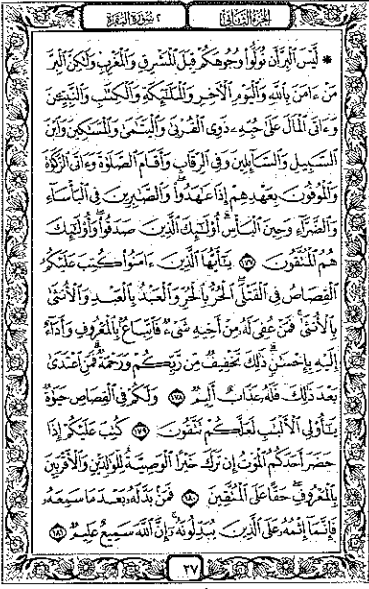 الجزء الثاني
٢ سورة البقرة
* لَّيْسَ ٱلْبِرَّ أَن تُوَلُّوا۟ وُجُوهَكُمْ قِبَلَ ٱلْمَشْرِقِ وَٱلْمَغْرِبِ وَلَـٰكِنَّ ٱلْبِرَّ
مَنْ ءَامَنَ بِٱللَّهِ وَٱلْيَوْمِ ٱلْـَٔاخِرِ وَٱلْمَلَـٰٓئِكَةِ وَٱلْكِتَـٰبِ وَٱلنَّبِيِّـۧنَ
وَءَاتَى ٱلْمَالَ عَلَىٰ حُبِّهِۦ ذَوِى ٱلْقُرْبَىٰ وَٱلْيَتَـٰمَىٰ وَٱلْمَسَـٰكِينَ وَٱبْنَ
ٱلسَّبِيلِ وَٱلسَّآئِلِينَ وَفِى ٱلرِّقَابِ وَأَقَامَ ٱلصَّلَوٰةَ وَءَاتَى ٱلزَّكَوٰةَ
وَٱلْمُوفُونَ بِعَهْدِهِمْ إِذَا عَـٰهَدُوا۟ ۖ وَٱلصَّـٰبِرِينَ فِى ٱلْبَأْسَآءِ
وَٱلضَّرَّآءِ وَحِينَ ٱلْبَأْسِ ۗ أُو۟لَـٰٓئِكَ ٱلَّذِينَ صَدَقُوا۟ ۖ وَأُو۟لَـٰٓئِكَ
هُمُ ٱلْمُتَّقُونَ ١٧٧ يَـٰٓأَيُّهَا ٱلَّذِينَ ءَامَنُوا۟ كُتِبَ عَلَيْكُمُ
ٱلْقِصَاصُ فِى ٱلْقَتْلَى ۖ ٱلْحُرُّ بِٱلْحُرِّ وَٱلْعَبْدُ بِٱلْعَبْدِ وَٱلْأُنثَىٰ
بِٱلْأُنثَىٰ ۚ فَمَنْ عُفِىَ لَهُۥ مِنْ أَخِيهِ شَىْءٌ فَٱتِّبَاعٌۢ بِٱلْمَعْرُوفِ وَأَدَآءٌ
إِلَيْهِ بِإِحْسَـٰنٍ ۗ ذَٰلِكَ تَخْفِيفٌ مِّن رَّبِّكُمْ وَرَحْمَةٌ ۗ فَمَنِ ٱعْتَدَىٰ
بَعْدَ ذَٰلِكَ فَلَهُۥ عَذَابٌ أَلِيمٌ ١٧٨ وَلَكُمْ فِى ٱلْقِصَاصِ حَيَوٰةٌ
يَـٰٓأُو۟لِى ٱلْأَلْبَـٰبِ لَعَلَّكُمْ تَتَّقُونَ ١٧٩ كُتِبَ عَلَيْكُمْ إِذَا
حَضَرَ أَحَدَكُمُ ٱلْمَوْتُ إِن تَرَكَ خَيْرًا ٱلْوَصِيَّةُ لِلْوَٰلِدَيْنِ وَٱلْأَقْرَبِينَ
بِٱلْمَعْرُوفِ ۖ حَقًّا عَلَى ٱلْمُتَّقِينَ ١٨٠ فَمَنۢ بَدَّلَهُۥ بَعْدَ مَا سَمِعَهُۥ
فَإِنَّمَآ إِثْمُهُۥ عَلَى ٱلَّذِينَ يُبَدِّلُونَهُۥٓ ۚ إِنَّ ٱللَّهَ سَمِيعٌ عَلِيمٌ ١٨١
٢٧